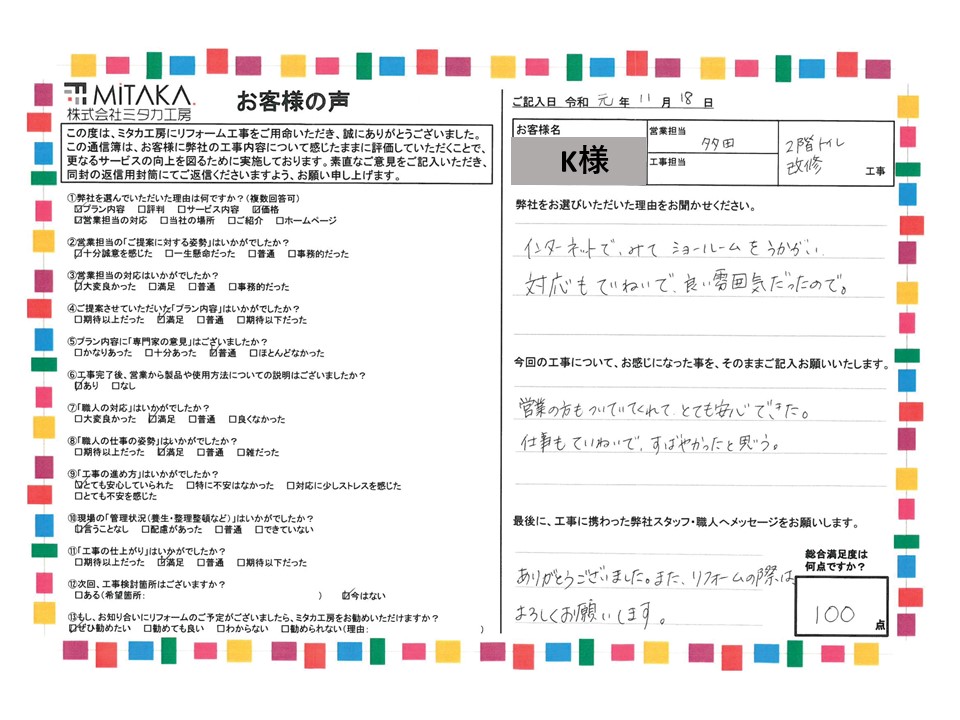 MiTAKA.
株式会社ミタカ工房
お客様の声
この度は、ミタカ工房にリフォーム工事をご用命いただき、誠にありがとうございました。
この通信簿は、お客様に弊社の工事内容について感じたままに評価していただくことで、
更なるサービスの向上を図るために実施しております。素直なご意見をご記入いただき、
同封の返信用封筒にてご返信くださいますよう、お願い申し上げます。
①弊社を選んでいただいた理由は何ですか？（複数回答可）
☑プラン内容 □評判 □サービス内容 ☑価格
☑営業担当の対応 □当社の場所 □ご紹介 □ホームページ
②営業担当の「ご提案に対する姿勢」はいかがでしたか？
☑十分誠意を感じた □一生懸命だった □普通 □事務的だった
③営業担当の対応はいかがでしたか？
☑大変良かった □満足 □普通 □事務的だった
④ご提案させていただいた「プラン内容」はいかがでしたか？
□期待以上だった ☑満足 □普通 □期待以下だった
⑤プラン内に「専門家の意見」はございましたか？
□かなりあった □十分あった ☑普通 □ほとんどなかった
⑥工事完了後、営業から製品や使用方法についての説明はございましたか？
☑あり □なし
⑦「職人の対応」はいかがでしたか？
□大変良かった ☑満足 □普通 □良くなかった
⑧「職人の仕事の姿勢」はいかがでしたか？
□期待以上だった ☑満足 □普通 □雑だった
⑨「工事の進め方」はいかがでしたか？
☑とても安心していられた □特に不安はなかった □対応に少しストレスを感じた
□とても不安を感じた
⑩現場の「管理状況（養生・整理整頓など）」はいかがでしたか？
☑言うことなし □配慮があった □普通 □できていない
⑪「工事の仕上がり」はいかがでしたか？
□期待以上だった ☑満足 □普通 □期待以下だった
⑫次回、工事検討箇所はございますか？
□ある（希望箇所: ） ☑今はない
⑬もし、お知り合いにリフォームのご予定がございましたら、ミタカ工房をお勧めいただけますか？
☑ぜひ勧めたい □勧めても良い □わからない □勧められない（理由: ）
ご記入日 令和 元 年 11 月 18 日
お客様名
K様
営業担当
多田
工事担当
2階トイレ
改修 工事
弊社をお選びいただいた理由をお聞かせください。
インターネットで、みて ショールームをうかがい、
対応もていねいで、良い雰囲気だったので。
今回の工事について、お感じになった事を、そのままご記入お願いいたします。
営業の方もついていてくれて、とても安心できた。
仕事もていねいで、すばやかったと思う。
最後に、工事に携わった弊社スタッフ・職人へメッセージをお願いします。
ありがとうございました。また、リフォームの際は
よろしくお願いします。
総合満足度は
何点ですか？
100 点